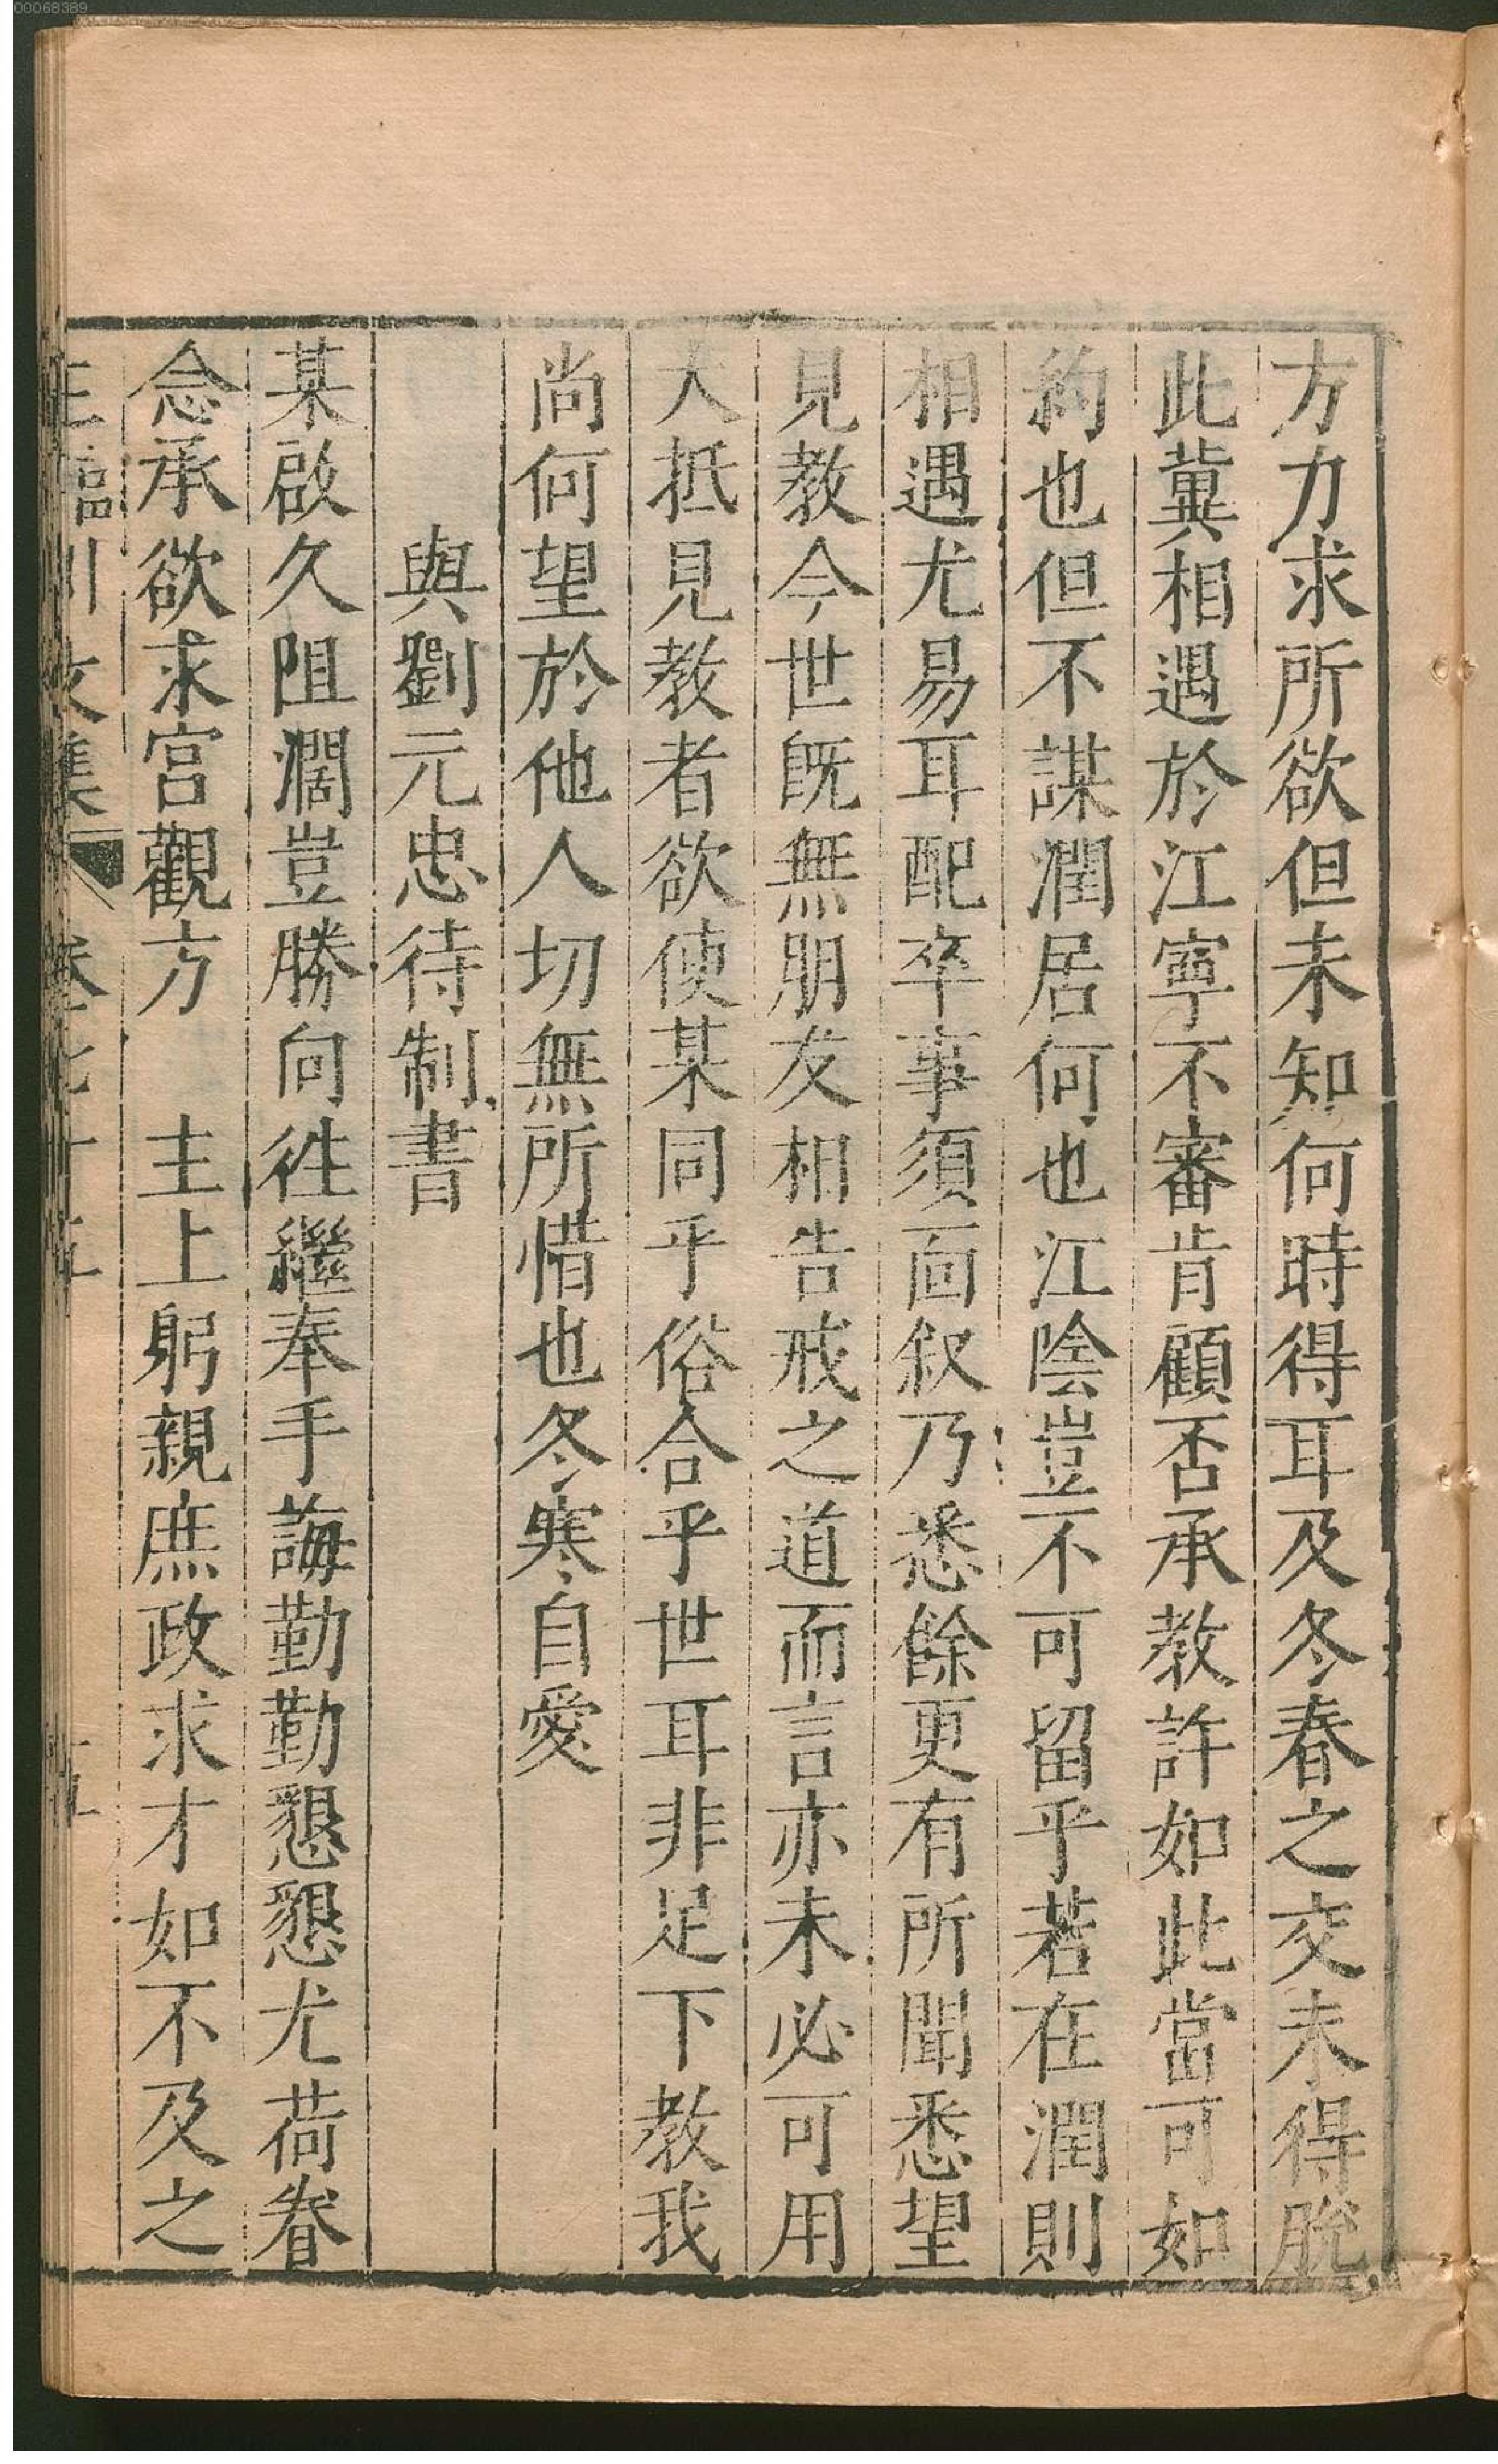 方力求所欲但未知何時得耳及冬春之交未得脫
此冀相遇於江寧不審肯顧否承教許如此當可如
約也但不謀潤居何也江陰豈不可留乎若在潤則
相遇尤易耳配卒事須面叙乃悉餘更有所聞悉望
見教今世旣無朋友相告戒之道而言亦未必可用
大抵見教者欲使某同乎俗合乎世耳非足下教我
尚何望於他人切無所惜也冬寒自愛
與劉元忠待制書
某啟久阻濶豈勝向徃繼奉手誨勤勤懇懇尤荷眷
念承欲求宮觀方　主上躬親庶政求才如不及之
王臨川文集 卷七十五
00068389